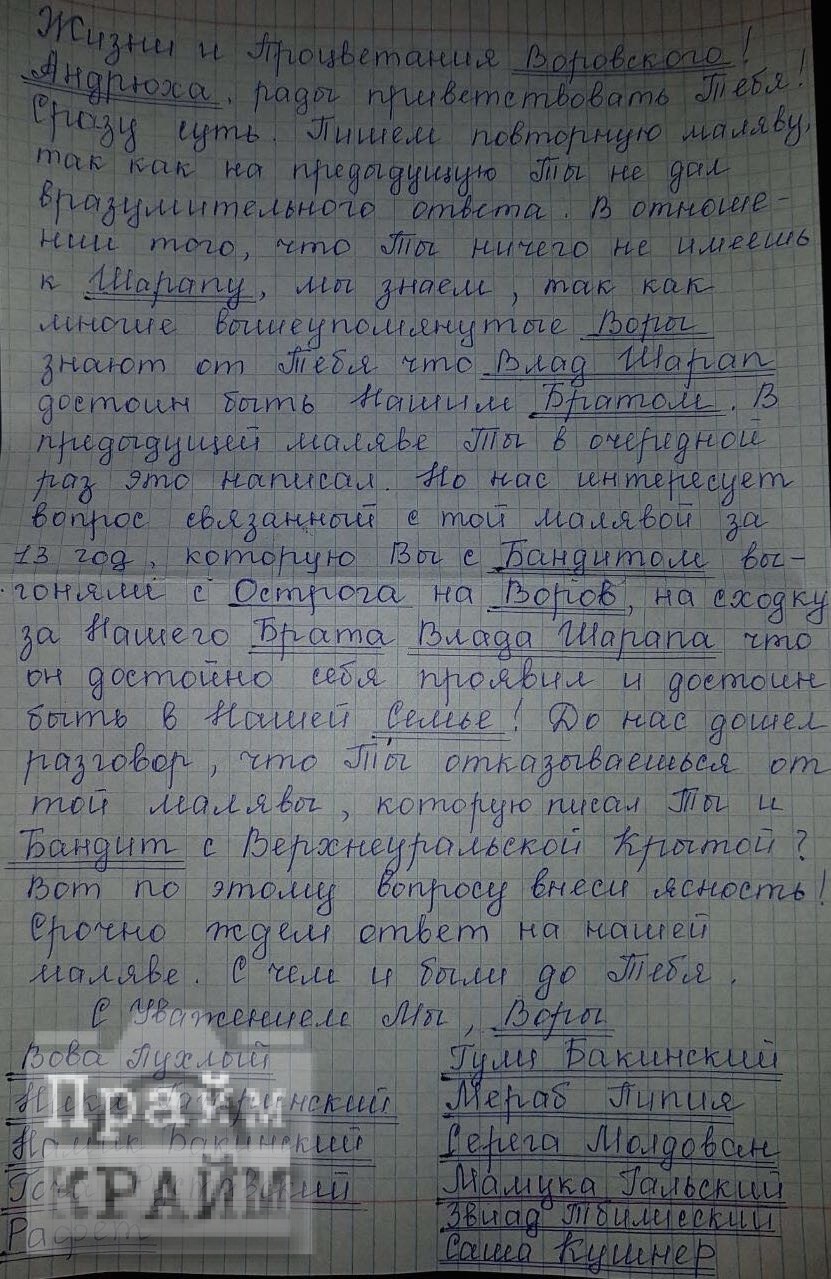 Жизни и Процветания Воровского!
Андрюха, рады приветствовать Тебя!
Сразу суть. Пишем повторную маляву,
так как на предыдущую Ты не дал
вразумительного ответа. В отноше-
нии того, что Ты ничего не имеешь
к Шарапу, мы знаем, так как
многие вышеупомянутые Воры
знают от Тебя что Влад Шарап
достоин быть Нашим Братом. В
предыдущей маляве Ты в очередной
раз это написал. Но нас интересует
вопрос связанный с той малявой за
13 год, которую Вы с Бандитом вы-
гоняли с Острога на Воров, на сходку
за Нашего Брата Влада Шарапа что
он достойно себя проявил и достоин
быть в Нашей Семье! До нас дошел
разговор, что Ты отказываешься от
той малявы, которую писал Ты и
Бандит с Верхнеуральской Крытой?
Вот по этому вопросу внеси ясность!
Срочно ждем ответ на нашей
маляве. С чем и были до Тебя.
С Уважением Мы, Воры
Вова Пухлый
Гули Бакинский
Мераб Пипия
Бакинский
Серега Молдован
Мамука Гальский
Звиад Тбилисский
Саша Кушнер
Прайм
КРАЙМ